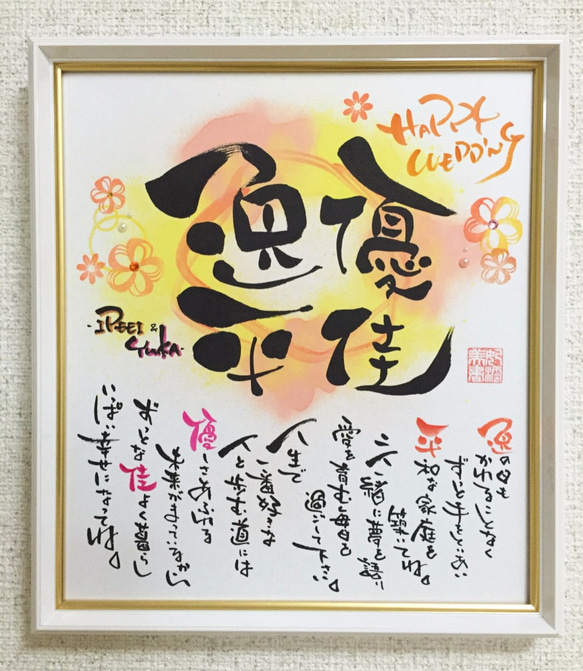 HAPPY
WEDDING
優佳
逸平
IPPEI &
Yuka
逸の日も
かわることなく
ずっと手をとりあい
平和な家庭を
築いてね。
二人一緒に夢を語り
愛を育む毎日を
過ごして下さい。
人生で
一番好きな
人と歩む道には
優しさあふれる
未来がまっているから
ずっとな佳よく暮らし
いっぱい幸せになってね。